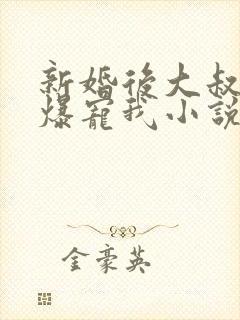 新婚後大叔
爆寵我小說
金豪英